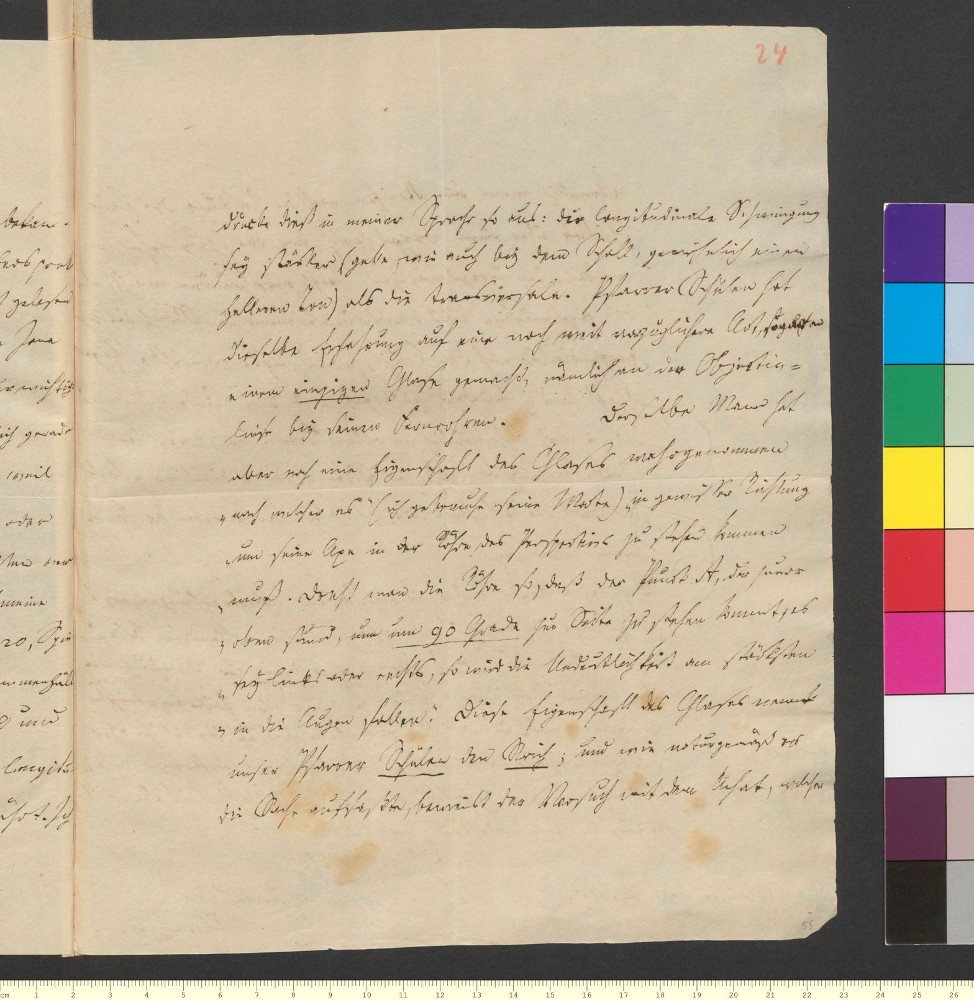 24
drücke dieß in meiner Sprache so aus: die longitudinale Schwingung
sey stärker (gebe, wie auch bey dem Schall, gewöhnlich einen
helleren Ton) als die transversale. Pfarrer Schülen hat
dieselbe Erfahrung auf eine noch weit vorzüglichere Art,
einem einzigen Glase gemacht, nämlich an der Objectiv-
linse bey seinen Fernröhren. Derselbe Mann hat
aber noch eine Eigenschaft des Glases wahrgenommen
„nach welcher es" (ich gebrauche seine Worte) „in gewisser Richtung
„um seine Axe in der Röhre des Perspectivs zu stehen kommen
„muß. Dreht man die Röhre so, daß der Punct A, der zuvor
„oben stund, nun um 90 Grade zur Seite zu stehen kommt, es
„sey links oder rechts, so wird die Undeutlichkeit am stärksten
„in die Augen fallen." Diese Eigenschaft des Glases nennt
unser Pfarrer Schülen den Strich; und wie naturgemäß er
die Sache auffaßte, beweist der Versuch mit dem Achat, welcher
55
bekan-
gelesen
Jena
wichtig
ich gerade
weil
oder
meine
20,
und
longitu-